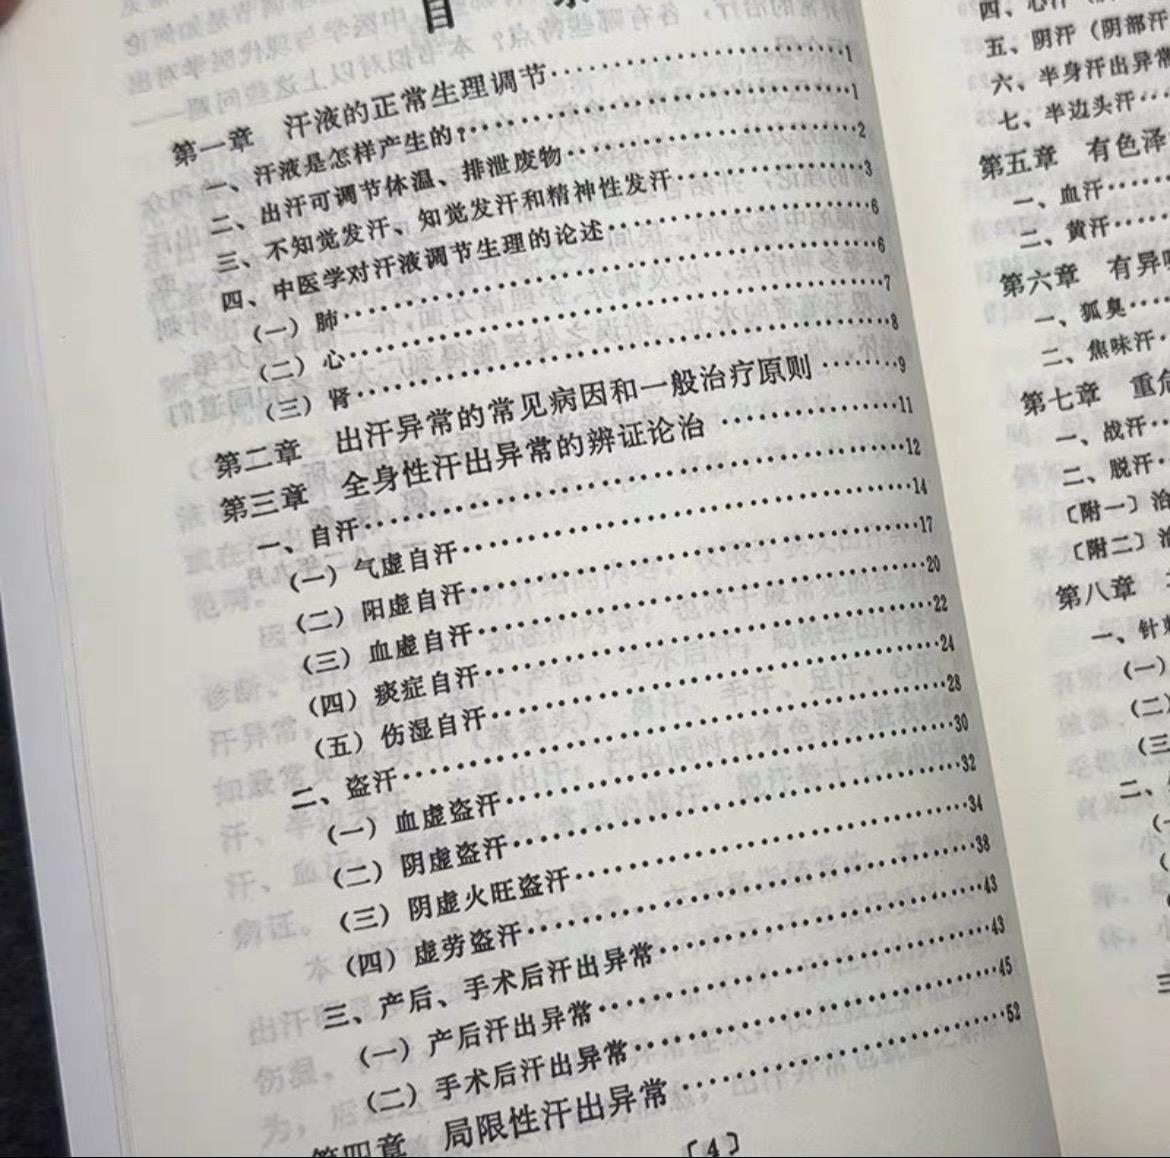 目
第一章 汗液的正常生理调节……1
一、汗液是怎样产生的?……1
二、出汗可调节体温、排泄废物……2
三、不知觉发汗、知觉发汗和精神性发汗……3
四、中医学对汗液调节生理的论述……6
(一)肺……6
(二)心……7
(三)肾……8
第二章 出汗异常的常见病因和一般治疗原则……9
第三章 全身性汗出异常的辨证论治……11
一、自汗……12
(一)气虚自汗……14
(二)阳虚自汗……17
(三)血虚自汗……20
(四)痰症自汗……22
(五)伤湿自汗……24
二、盗汗……28
(一)血虚盗汗……30
(二)阴虚盗汗……32
(三)阴虚火旺盗汗……34
(四)虚劳盗汗……38
三、产后、手术后汗出异常……43
(一)产后汗出异常……43
(二)手术后汗出异常……45
第四章 局限性汗出异常……52
〔4〕
四、心汗
五、阴汗(阴部汗
六、半身汗出异常
七、半边头汗…
第五章 有色泽
一、血汗……
二、黄汗……
第六章 有异
一、狐臭…
二、焦味汗
第七章 重
一、战汗…
二、脱汗
〔附一〕治
〔附二〕治
第八章
一、针
(一)
(二)
(三
二、